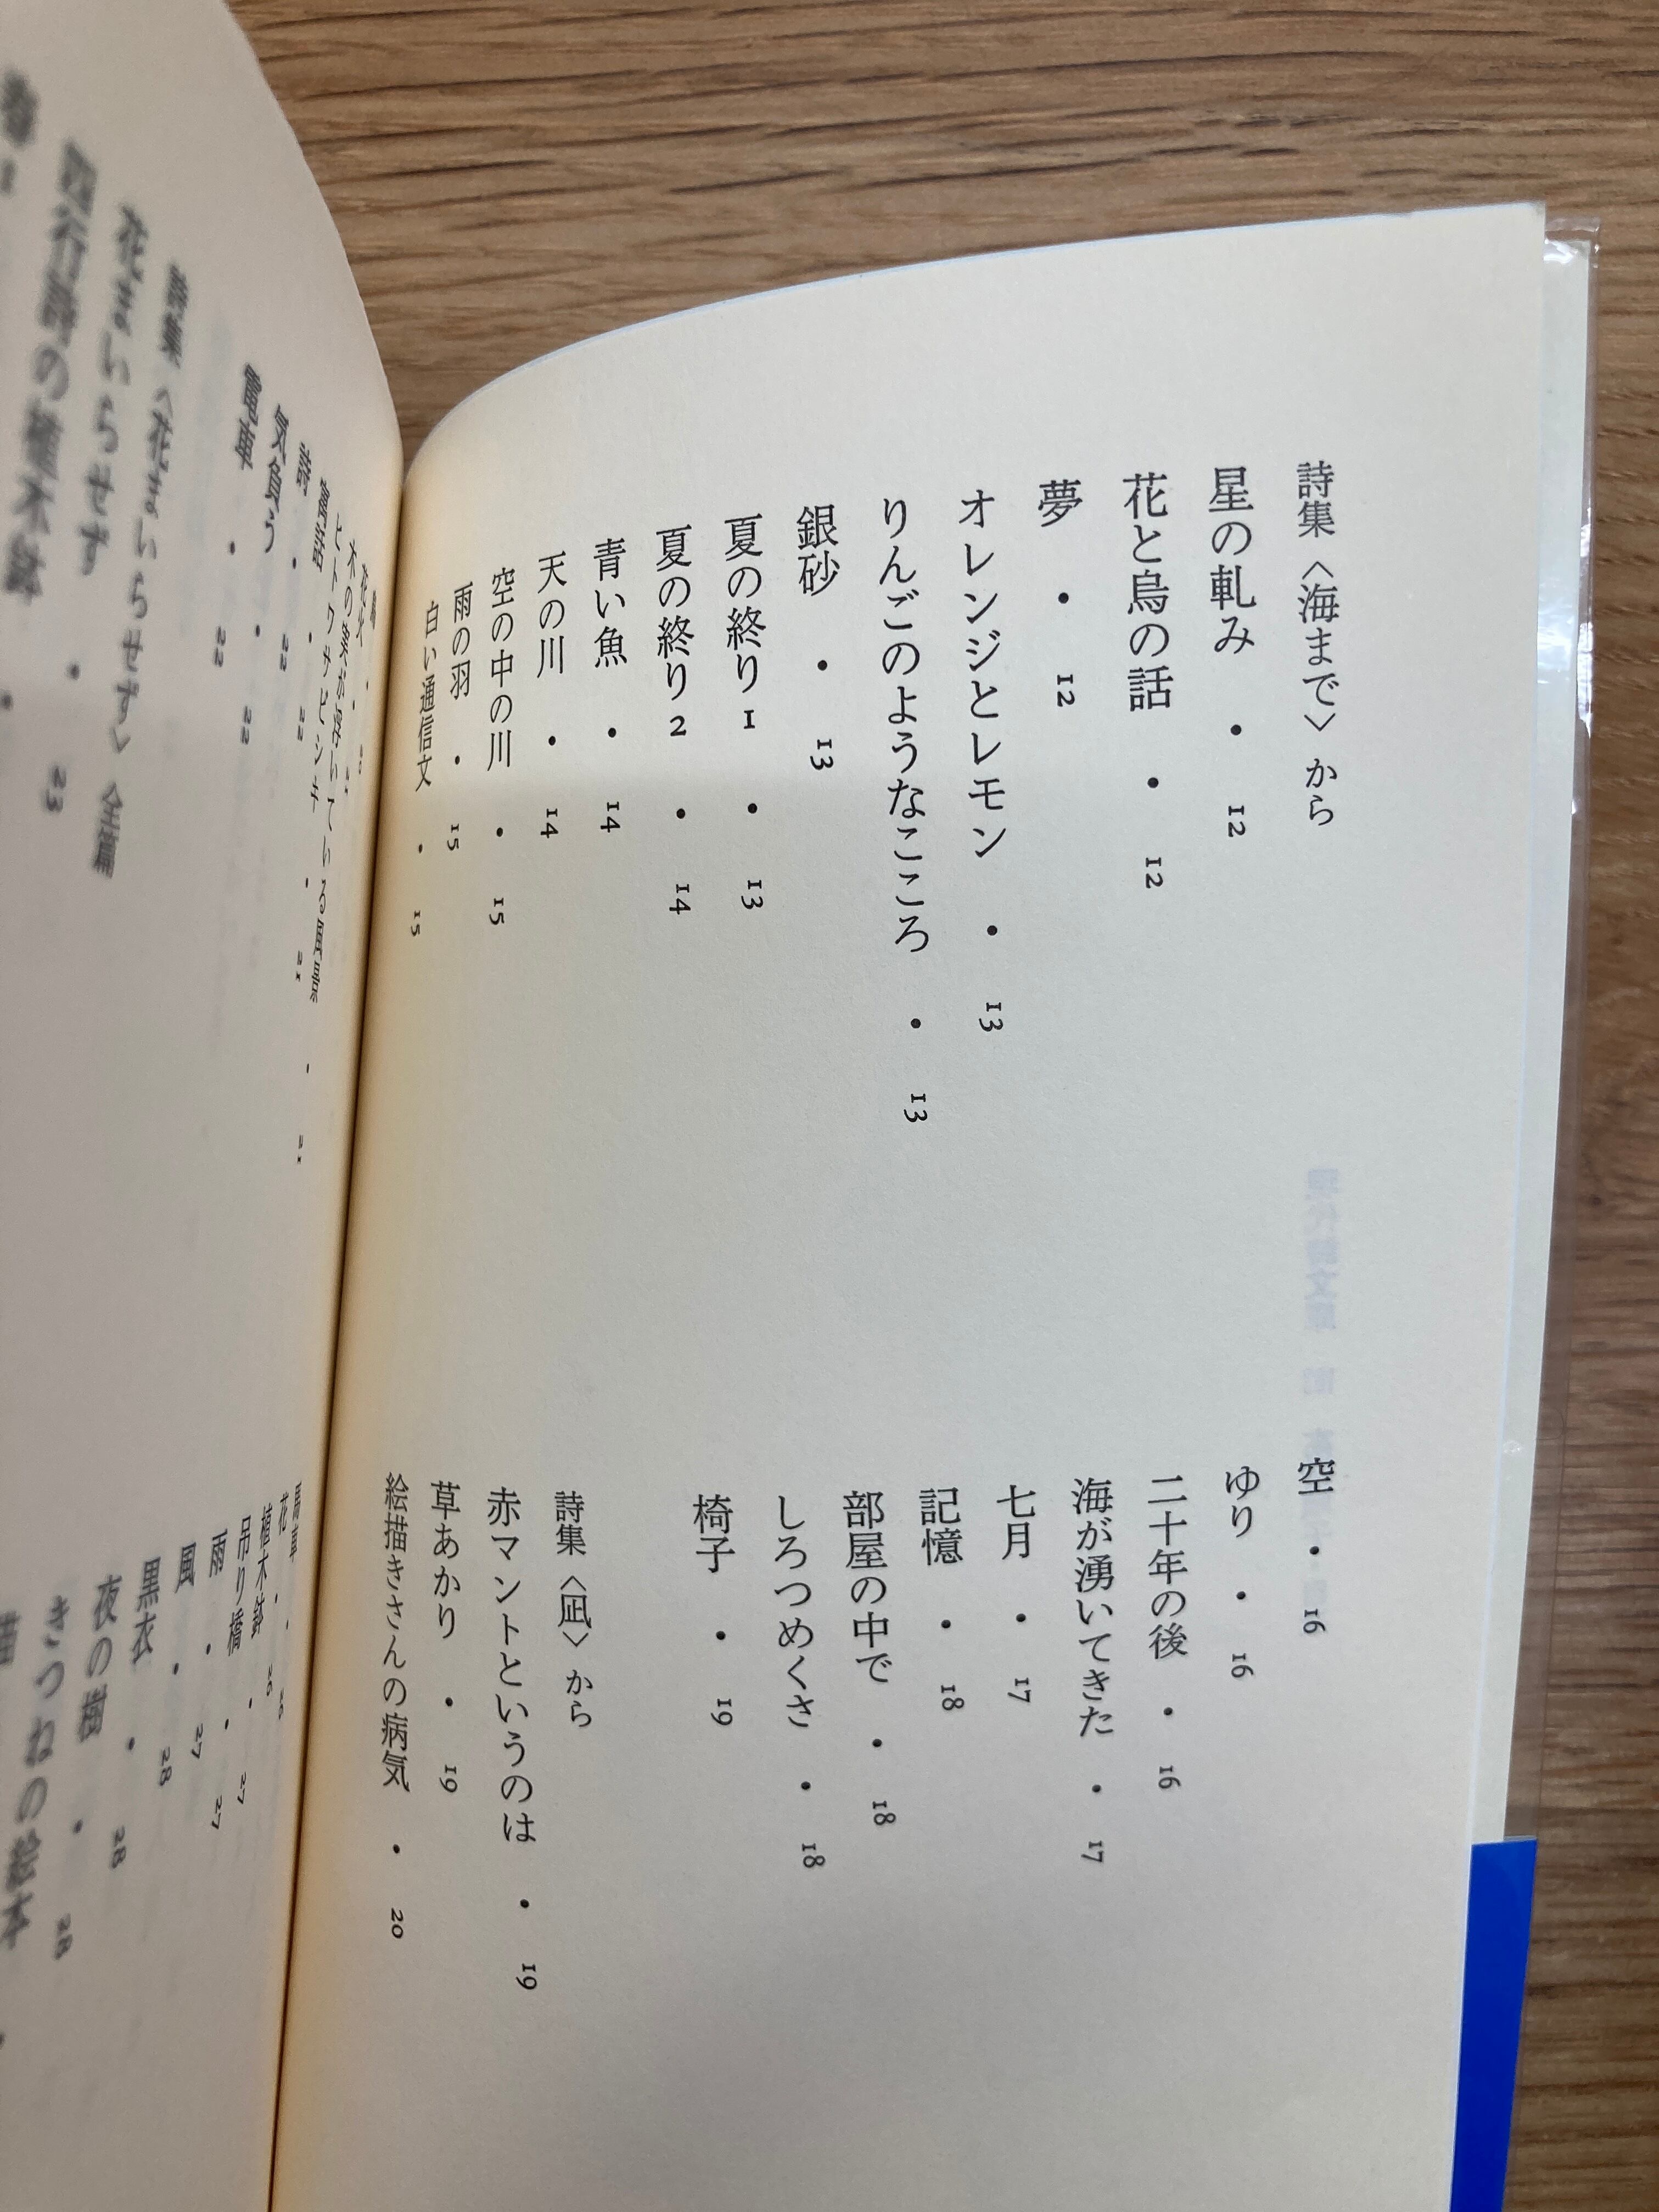 詩集〈海まで〉から
星の軋み・12
花と鳥の話・12
夢・12
オレンジとレモン・13
りんごのようなこころ・13
銀砂・13
夏の終り1・13
夏の終り2・14
青い魚・14
天の川・14
空の中の川・15
雨の羽・15
白い通信文・15
空・16
ゆり・16
二十年の後・16
海が湧いてきた・17
七月・17
記憶・18
部屋の中で・18
しろつめくさ・18
椅子・19
詩集〈凪〉から
赤マントというのは・19
草あかり・19
絵描きさんの病気・20
気負う・22
電車・22
詩集〈花まいらせず〉全篇
花まいらせず
四行詩の植木鉢・23
馬車
花
植木鉢・26
吊り橋・27
雨・27
風・27
黒衣・28
夜の樹・28
きつねの絵本